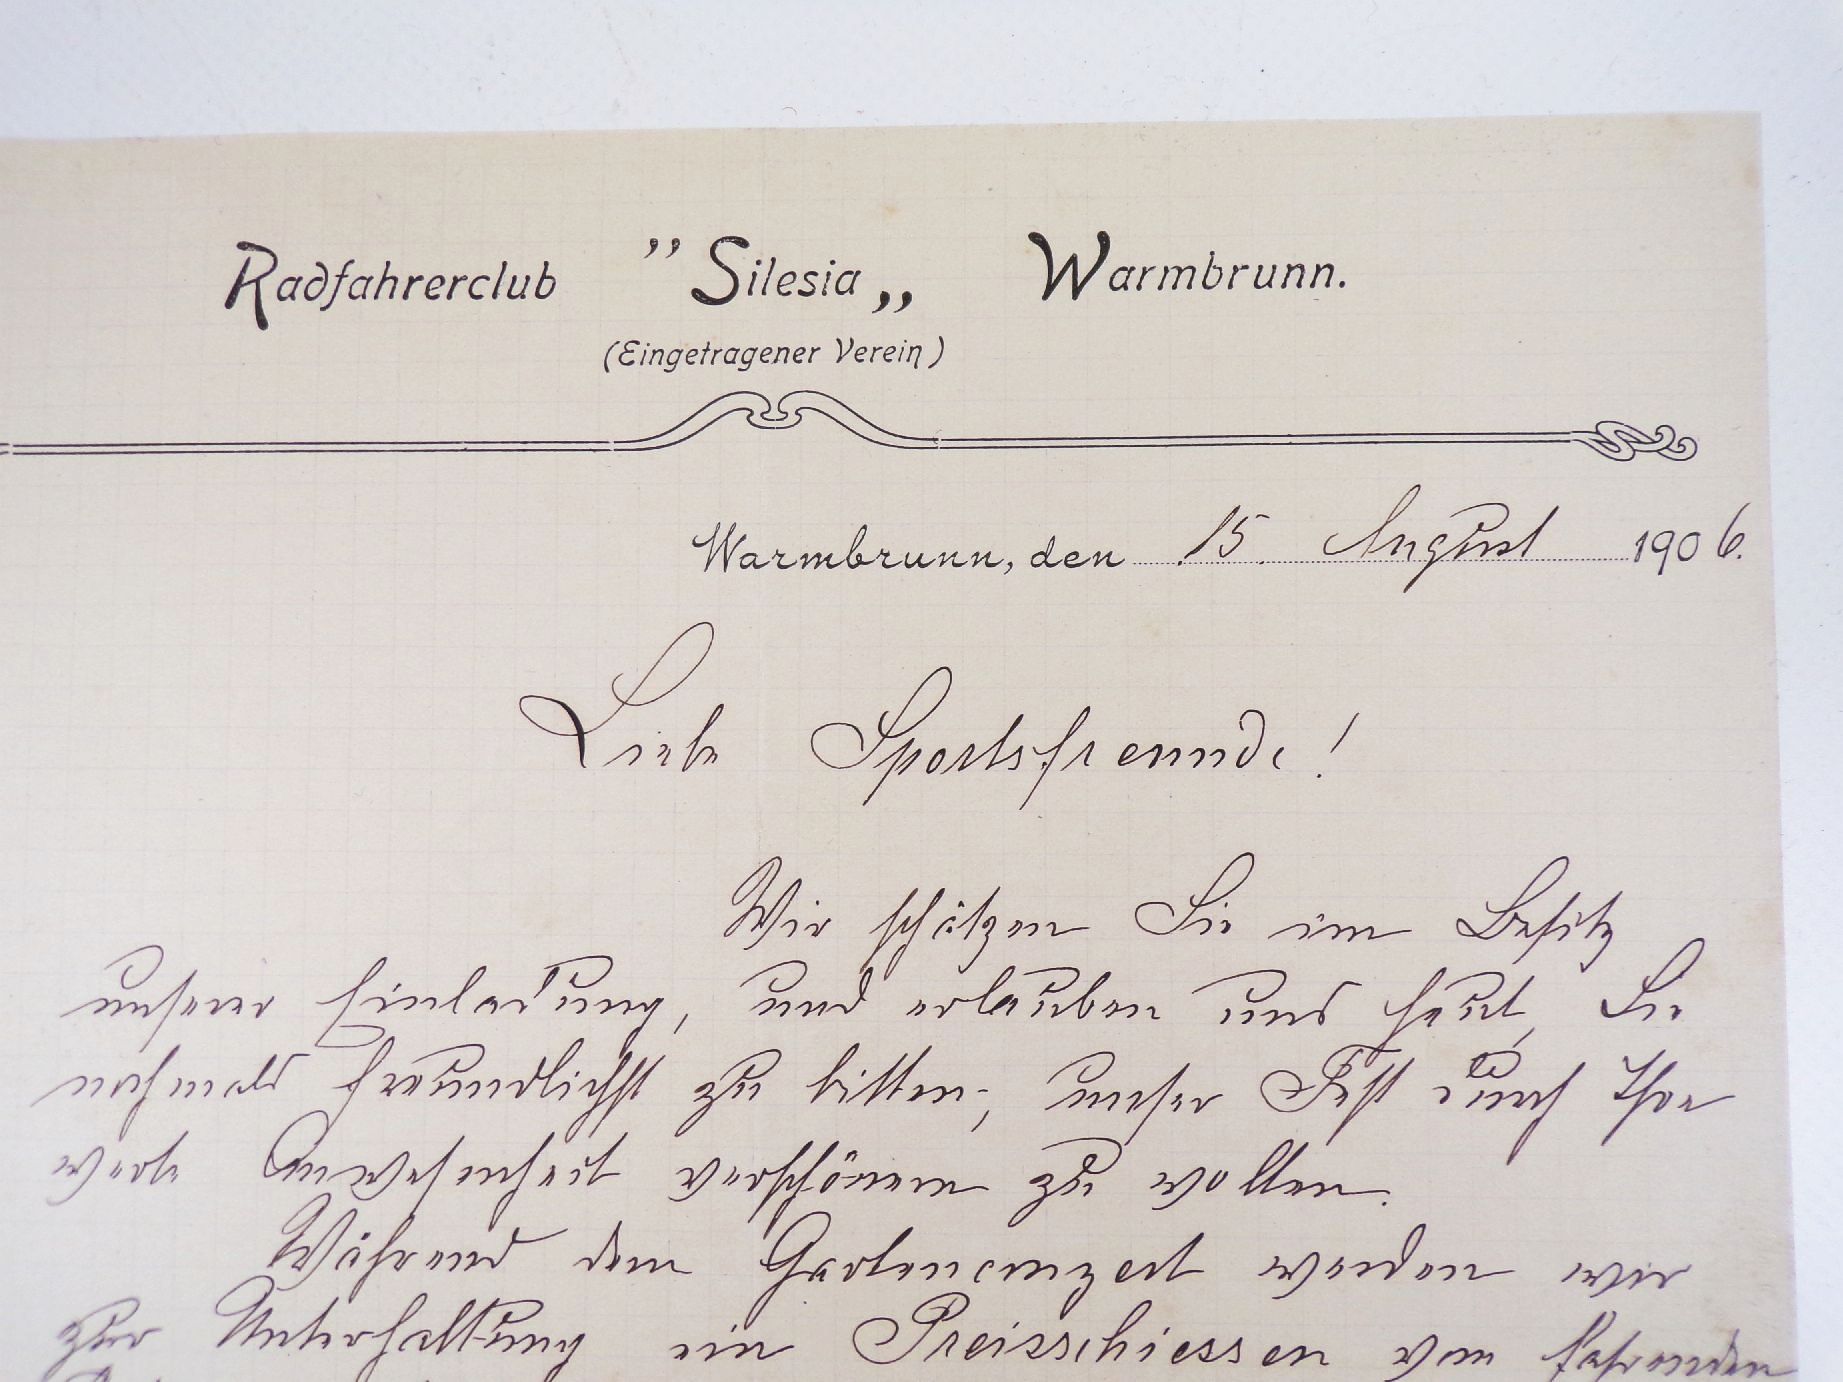 Radfahrerclub ”Silesia„ Warmbrunn.
(Eingetragener Verein)
Warmbrunn, den 15. August 1906.
Liebe Sportsfreunde!
Wir schätzen Sie im Besitz
unserer Einladung, und erlauben uns heut, Sie
nochmals freundlichst zu bitten, unser Fest durch Ihre
werte Anwesenheit verschönern zu wollen.
Während dem Gartenconzert werden wir
zur Unterhaltung ein Preisschiessen vom fahrenden